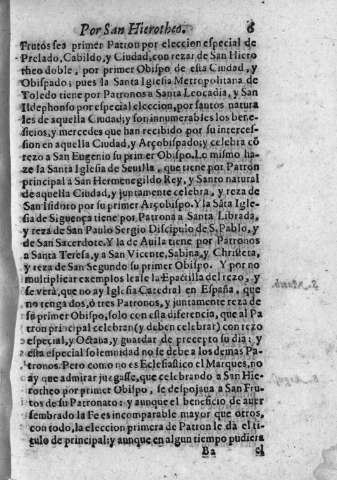 Por San Hierotheo. 6
Frutos sea primer Patron por eleccion especial de
Prelado, Cabildo, y Ciudad, con rezar de San Hiero
theo doble, por primer Obispo de esta Ciudad, y
Obispado; pues la Santa Iglesia Metropolitana de
Toledo tiene por Patronos a Santa Leocadia, y San
Ildephonso por especial eleccion, por santos natura
les de aquella Ciudad, y son innumerables los bene-
ficios, y mercedes que han recibido por su interces-
sion en aquella Ciudad, y Arçobispado; y celebra cõ
rezo a San Eugenio su primer Obispo. Lo mismo ha-
ze la Santa Iglesia de Seuilla, que tiene por Patron
principal à San Hermenegildo Rey, y Santo natural
de aquella Ciudad, y juntamente celebra, y reza de
San Isidoro por su primer Arçobispo. Y la Sãta Igle
sia de Siguença tiene por Patrona a Santa Librada,
y reza de San Paulo Sergio Discipulo de S. Pablo, y
de San Sacerdote. Y la de Auila tiene por Patronos
a Santa Teresa, y a San Vicente, Sabina, y Christeta,
y reza de San Segundo su primer Obispo. Y por no
multiplicar exemplos lease la Epactilla del rezo, y
se verà, que no ay Iglesia Catedral en España, que
no tenga dos, ò tres Patronos, y juntamente reza de
su primer Obispo, solo con esta diferencia, que al Pa
tron principal celebran (y deben celebrar) con rezo
especial, y Octaua, y guardar de precepto su dia; y
esta especial solemnidad no se debe a los demas Pa-
tronos. Pero como no es Eclesiastico el Marques, no
ay que admirar juzgasse, que celebrando a San Hie-
rotheo por primer Obispo, se despojaua a San Fru-
tos de su Patronato: y aunque el beneficio de auer
sembrado la Fe es incomparable mayor que otros,
con todo, la eleccion primera de Patron le dà el ti-
tulo de principal; y aunque en algun tiempo pudiera
Ba el